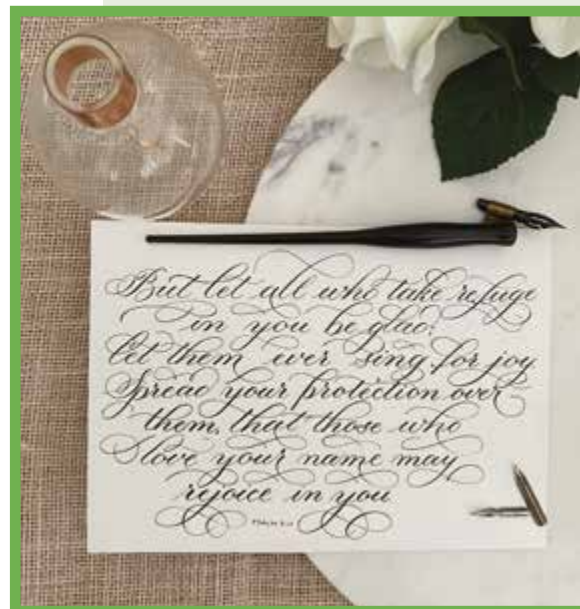 But let all who take refuge
in you be glad;
let them ever sing for joy.
Spread your protection over
them, that those who
love your name may
rejoice in you
Psalm 5:11